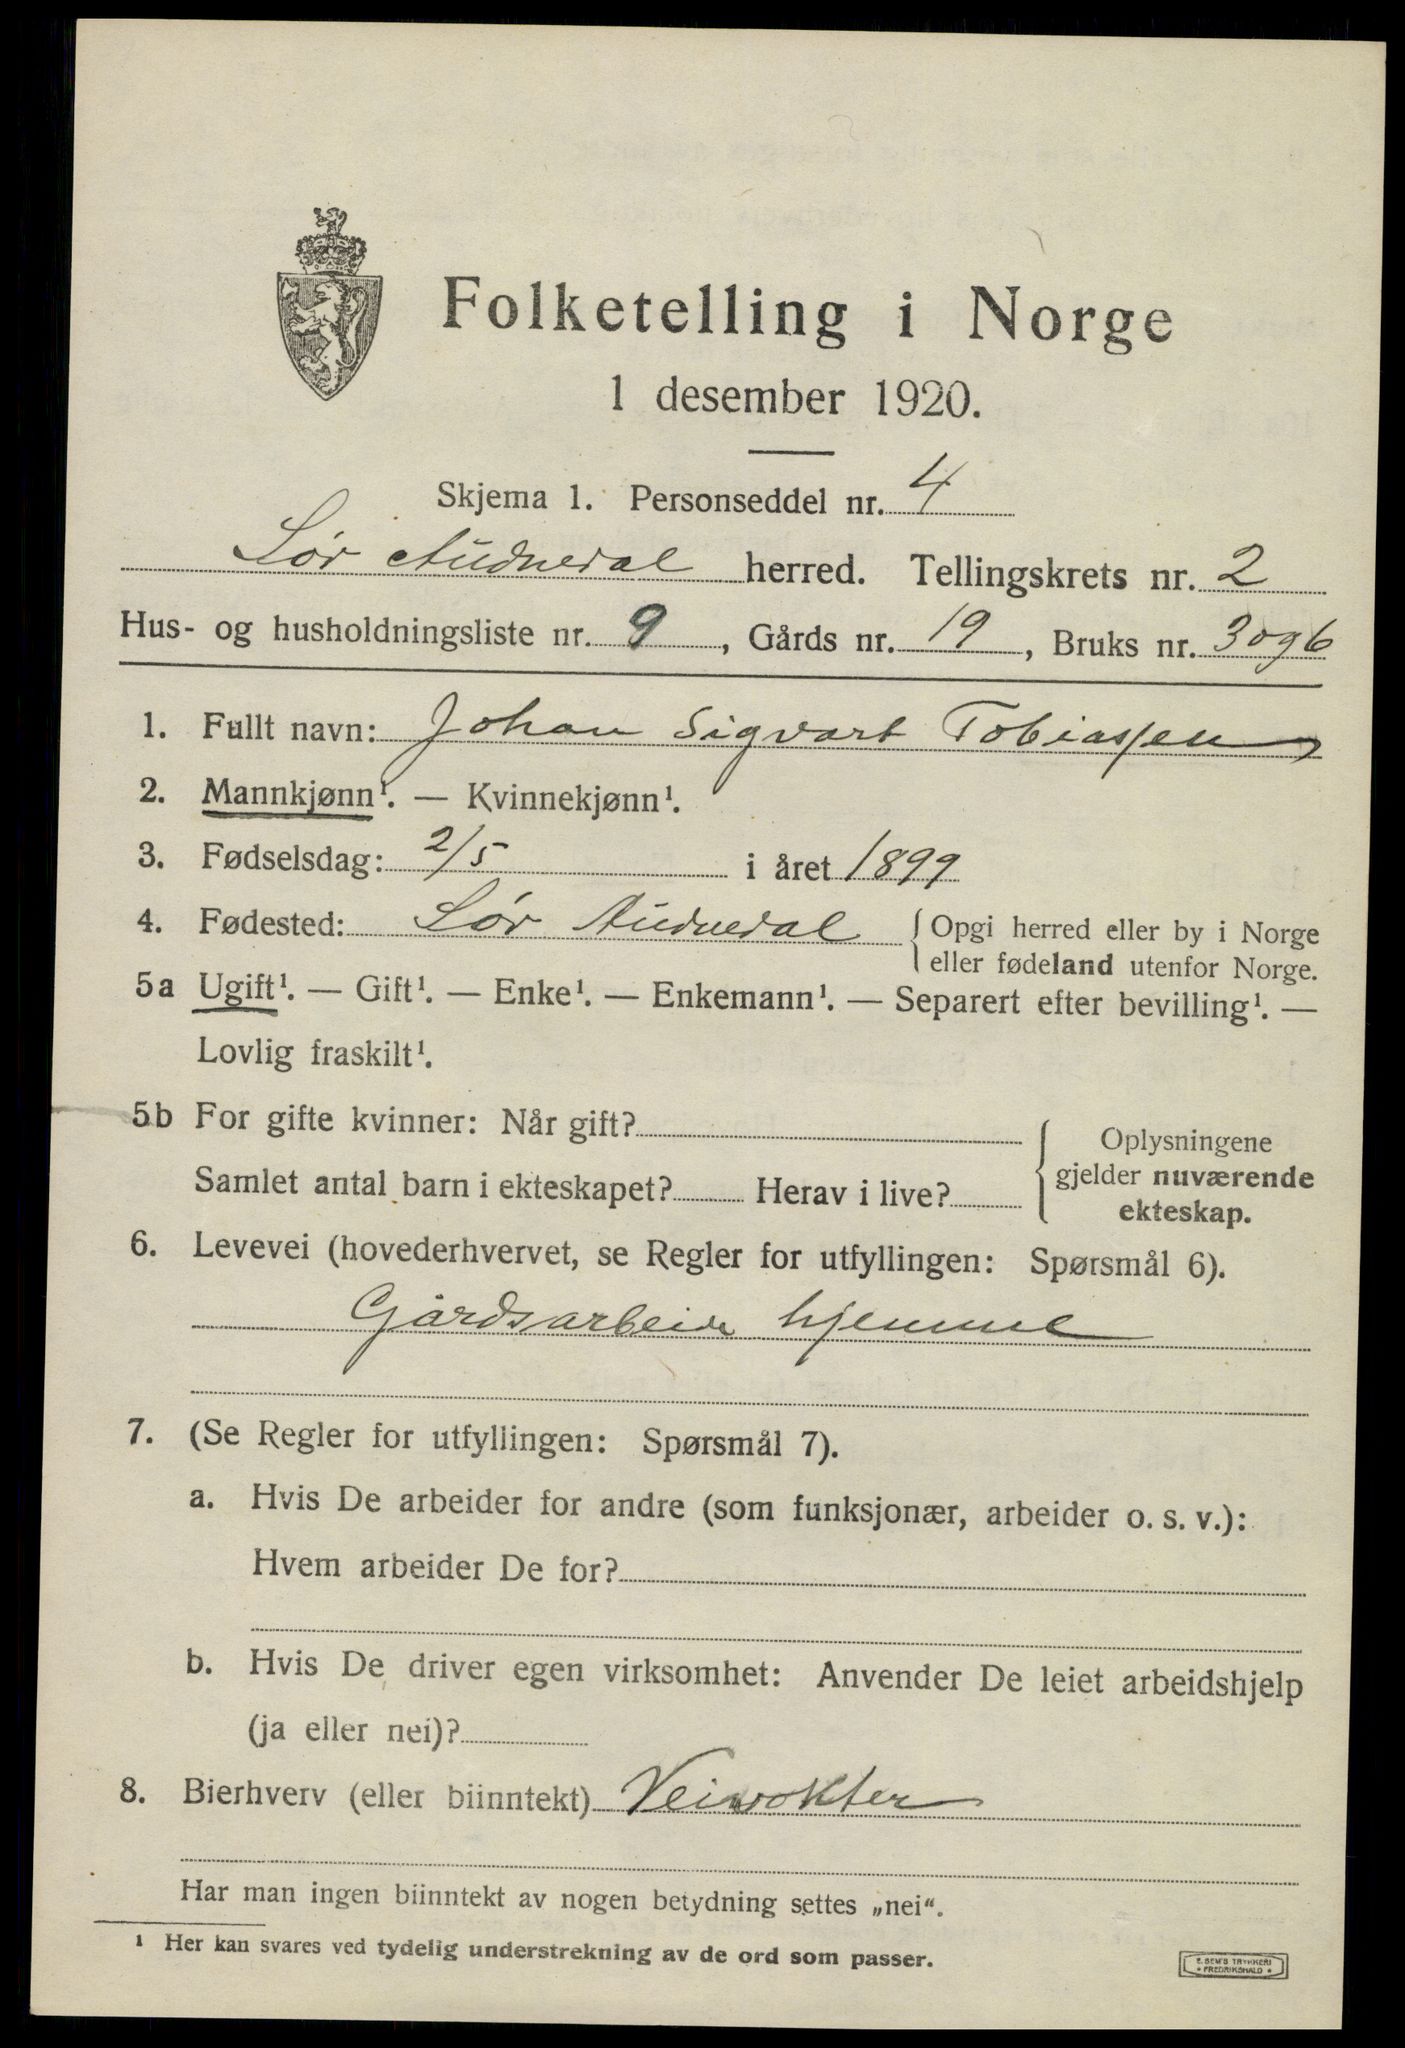 Folketelling i Norge
1 desember 1920.
Skjema 1. Personseddel nr. 4
Sør Audnedal herred. Tellingskrets nr. 2
Hus- og husholdningsliste nr. 9, Gårds nr. 19, Bruks nr. 3 og 6
1. Fullt navn: Johan Sigvart Tobiassen
2. Mannkjønn¹. — Kvinnekjønn¹.
3. Fødselsdag: 2/5 i året 1899
4. Fødested: Sør Audnedal { Opgi herred eller by i Norge
eller fødeland utenfor Norge.
5a Ugift¹. — Gift¹. — Enke¹. — Enkemann¹. — Separert efter bevilling¹. —
Lovlig fraskilt¹.
5b For gifte kvinner: Når gift?
Samlet antal barn i ekteskapet? Herav i live?
Oplysningene
gjelder nuværende
ekteskap.
6. Levevei (hovederhvervet, se Regler for utfyllingen: Spørsmål 6).
Gårdsarbeide hjemme
7. (Se Regler for utfyllingen: Spørsmål 7).
a. Hvis De arbeider for andre (som funksjonær, arbeider o. s. v.):
Hvem arbeider De for?
b. Hvis De driver egen virksomhet: Anvender De leiet arbeidshjelp
(ja eller nei)?
8. Bierhverv (eller biinntekt) Veivokter
Har man ingen biinntekt av nogen betydning settes „nei“.
¹ Her kan svares ved tydelig understrekning av de ord som passer.
E. SEM'S TRYKKERI
* FREDRIKSHALD *